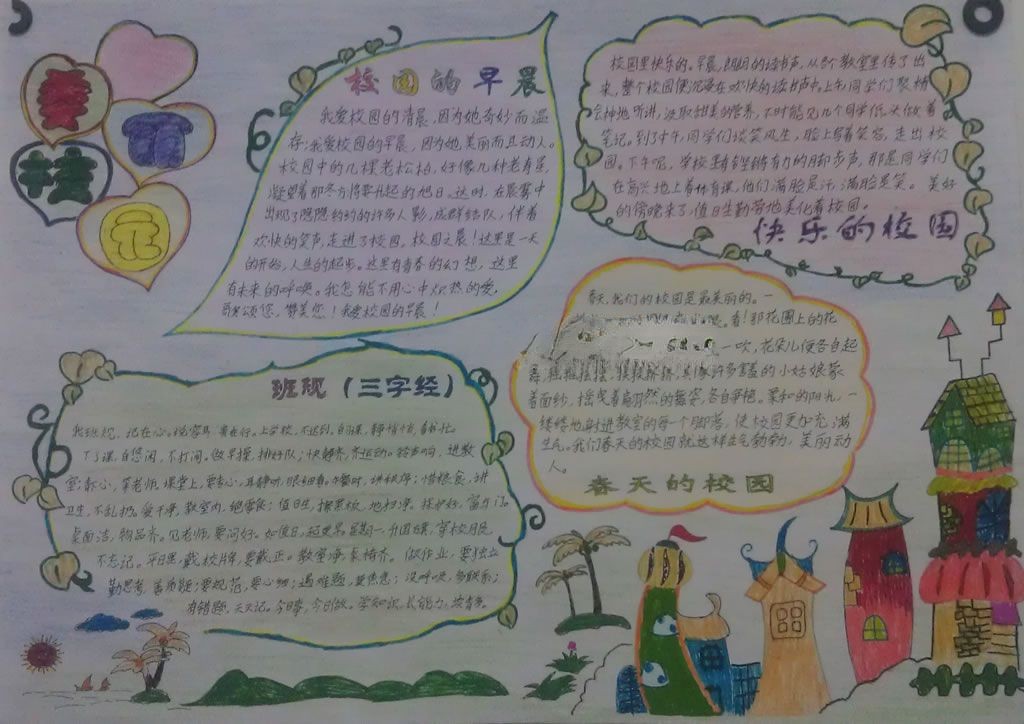 美
丽
校
园
校园的早晨
我爱校园的清晨,因为她奇妙而温
存;我爱校园的早晨,因为她美丽而且动人。
校园中的几棵老松柏,好像几种老寿星,
凝望着那东方将要升起的旭日。这时,在晨雾中
出现了隐隐约约的许多人影,成群结队,伴着
欢快的笑声,走进了校园。校园之晨!这里是一天
的开始,人生的起步。这里有青春的幻想,这里
有未来的呼唤。我怎能不用心中炽热的爱,
歌颂您,赞美您!我爱校园的早晨!
校园里快乐的。早晨,朗朗的读书声,从各个教室里传了出
来,整个校园便沉浸在欢快的读书声中。上午同学们聚精
会神地听讲,汲取甜美的营养,不时能见几个同学低头做着
笔记。到了中午,同学们谈笑风生,脸上写着笑容,走出校
园。下午呢,学校里有铿锵有力的脚步声,那是同学们
在高兴地上着体育课,他们满脸是汗,满脸是笑。美好
的傍晚来了,值日生勤劳地美化着校园。
快乐的校园
春天,我们的校园是最美丽的。一
看!那花圃上的花
一吹,花朵儿便各自起
舞,摇摇摆摆,挨挨挤挤,真像许多害羞的小姑娘蒙
着面纱,摇曳着自然的舞姿,各自争艳。柔和的阳光,一
缕缕地射进教室的每一个脚落,使校园更好充满
生气。我们春天的校园就这样生气勃勃,美丽动
人。
春天的校园
班规(三字经)
我班规,记在心。视容易,贵在行。上学校,不迟到。自习课,静悄悄,
下了课,自悠闲,不打闹。做早操,排好队;快静齐,齐运动。铃声响,进教
室;静心,等老师。课堂上,要专心,耳静听,眼细看。用餐时,讲秩序;惜粮食,讲
卫生,不乱扔。爱干净,教室内,绝零食;值日生,擦黑板,地扫净。
桌面洁,物品齐。见老师,要问好。如值日,起更早。星期一,升国旗,穿校服,
不忘记。平日里,戴校牌,要戴正。教室净,桌椅齐。做作业,要独立,
勤思考,善质疑;要规范,要心细;遇难题,莫焦急;
有错题,天天记。今日事,今日做。学知识,长能力,